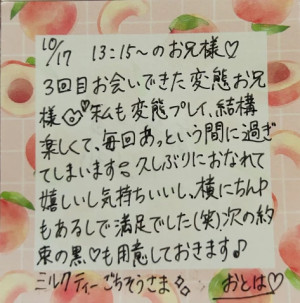 10/17 13:15〜のお兄様♡
3回目お会いできた変態お兄
様♡私も変態プレイ、結構
楽しくて、毎回あっという間に過ぎ
てしまいます 久しぶりにおなれて
嬉しいし気持ちいいし、横にちんP
もあるしで満足でした(笑)次の約
束の黒♡も用意しておきます♪
ミルクティーごちそうさま
おとは♡